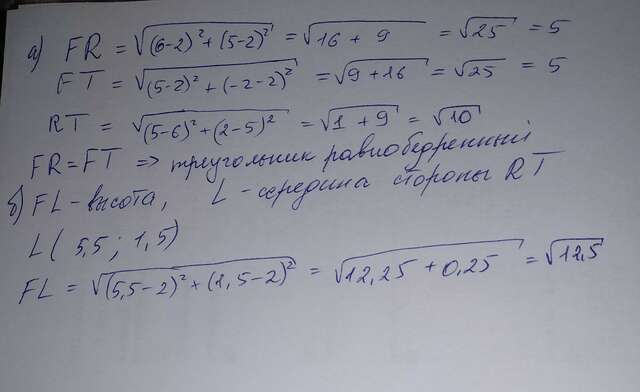 а) FR = √(6-2)² + (5-2)² = √16 + 9 = √25 = 5
FT = √(5-2)² + (-2-2)² = √9 + 16 = √25 = 5
RT = √(5-6)² + (2-5)² = √1 + 9 = √10
FR = FT => треугольник равнобедренный
б) FL - высота, L - середина стороны RT
L ( 5,5 ; 1,5)
FL = √(5,5-2)² + (1,5-2)² = √12,25 + 0,25 = √12,5